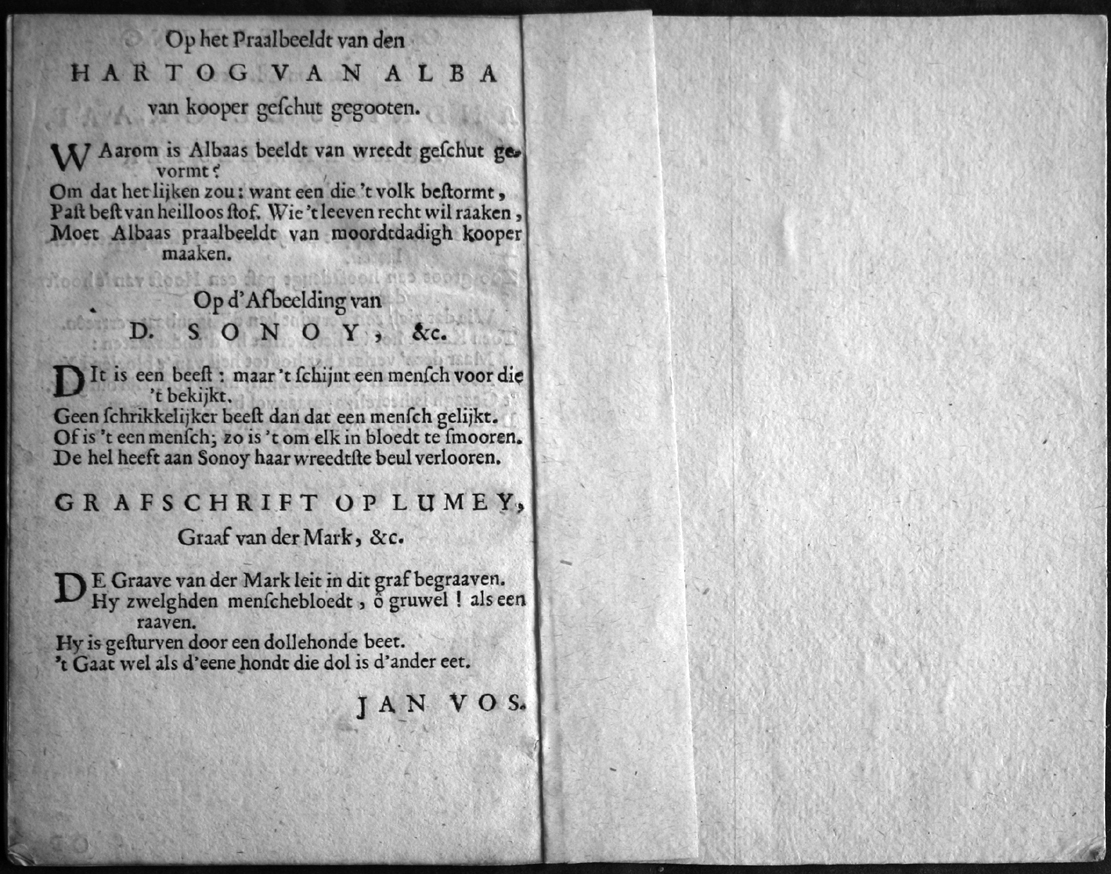 Op het Praalbeeldt van den
HARTOG VAN ALBA
van kooper geſchut gegooten.
WAarom is Albaas beeldt van wreedt geſchut ge-
vormt?
Om dat het lijken zou: want een die 't volk beſtormt,
Paſt beſt van heilloos ſtof. Wie 't leeven recht wil raaken,
Moet Albaas praalbeeldt van moordtdadigh kooper
maaken.
Op d'Afbeelding van
D. SONOY, &c.
DIt is een beeſt: maar 't ſchijnt een menſch voor die
't bekijkt.
Geen ſchrikkelijker beeſt dan dat een menſch gelijkt.
Of is 't een menſch; zo is 't om elk in bloedt te ſmooren.
De hel heeft aan Sonoy haar wreedtſte beul verlooren.
GRAFSCHRIFT OP LUMEY,
Graaf van der Mark, &c.
DE Graave van der Mark leit in dit graf begraaven.
Hy zwelghden menſchebloedt, ô gruwel! als een
raaven.
Hy is geſturven door een dollehonde beet.
't Gaat wel als d'eene hondt die dol is d'ander eet.
JAN VOS.